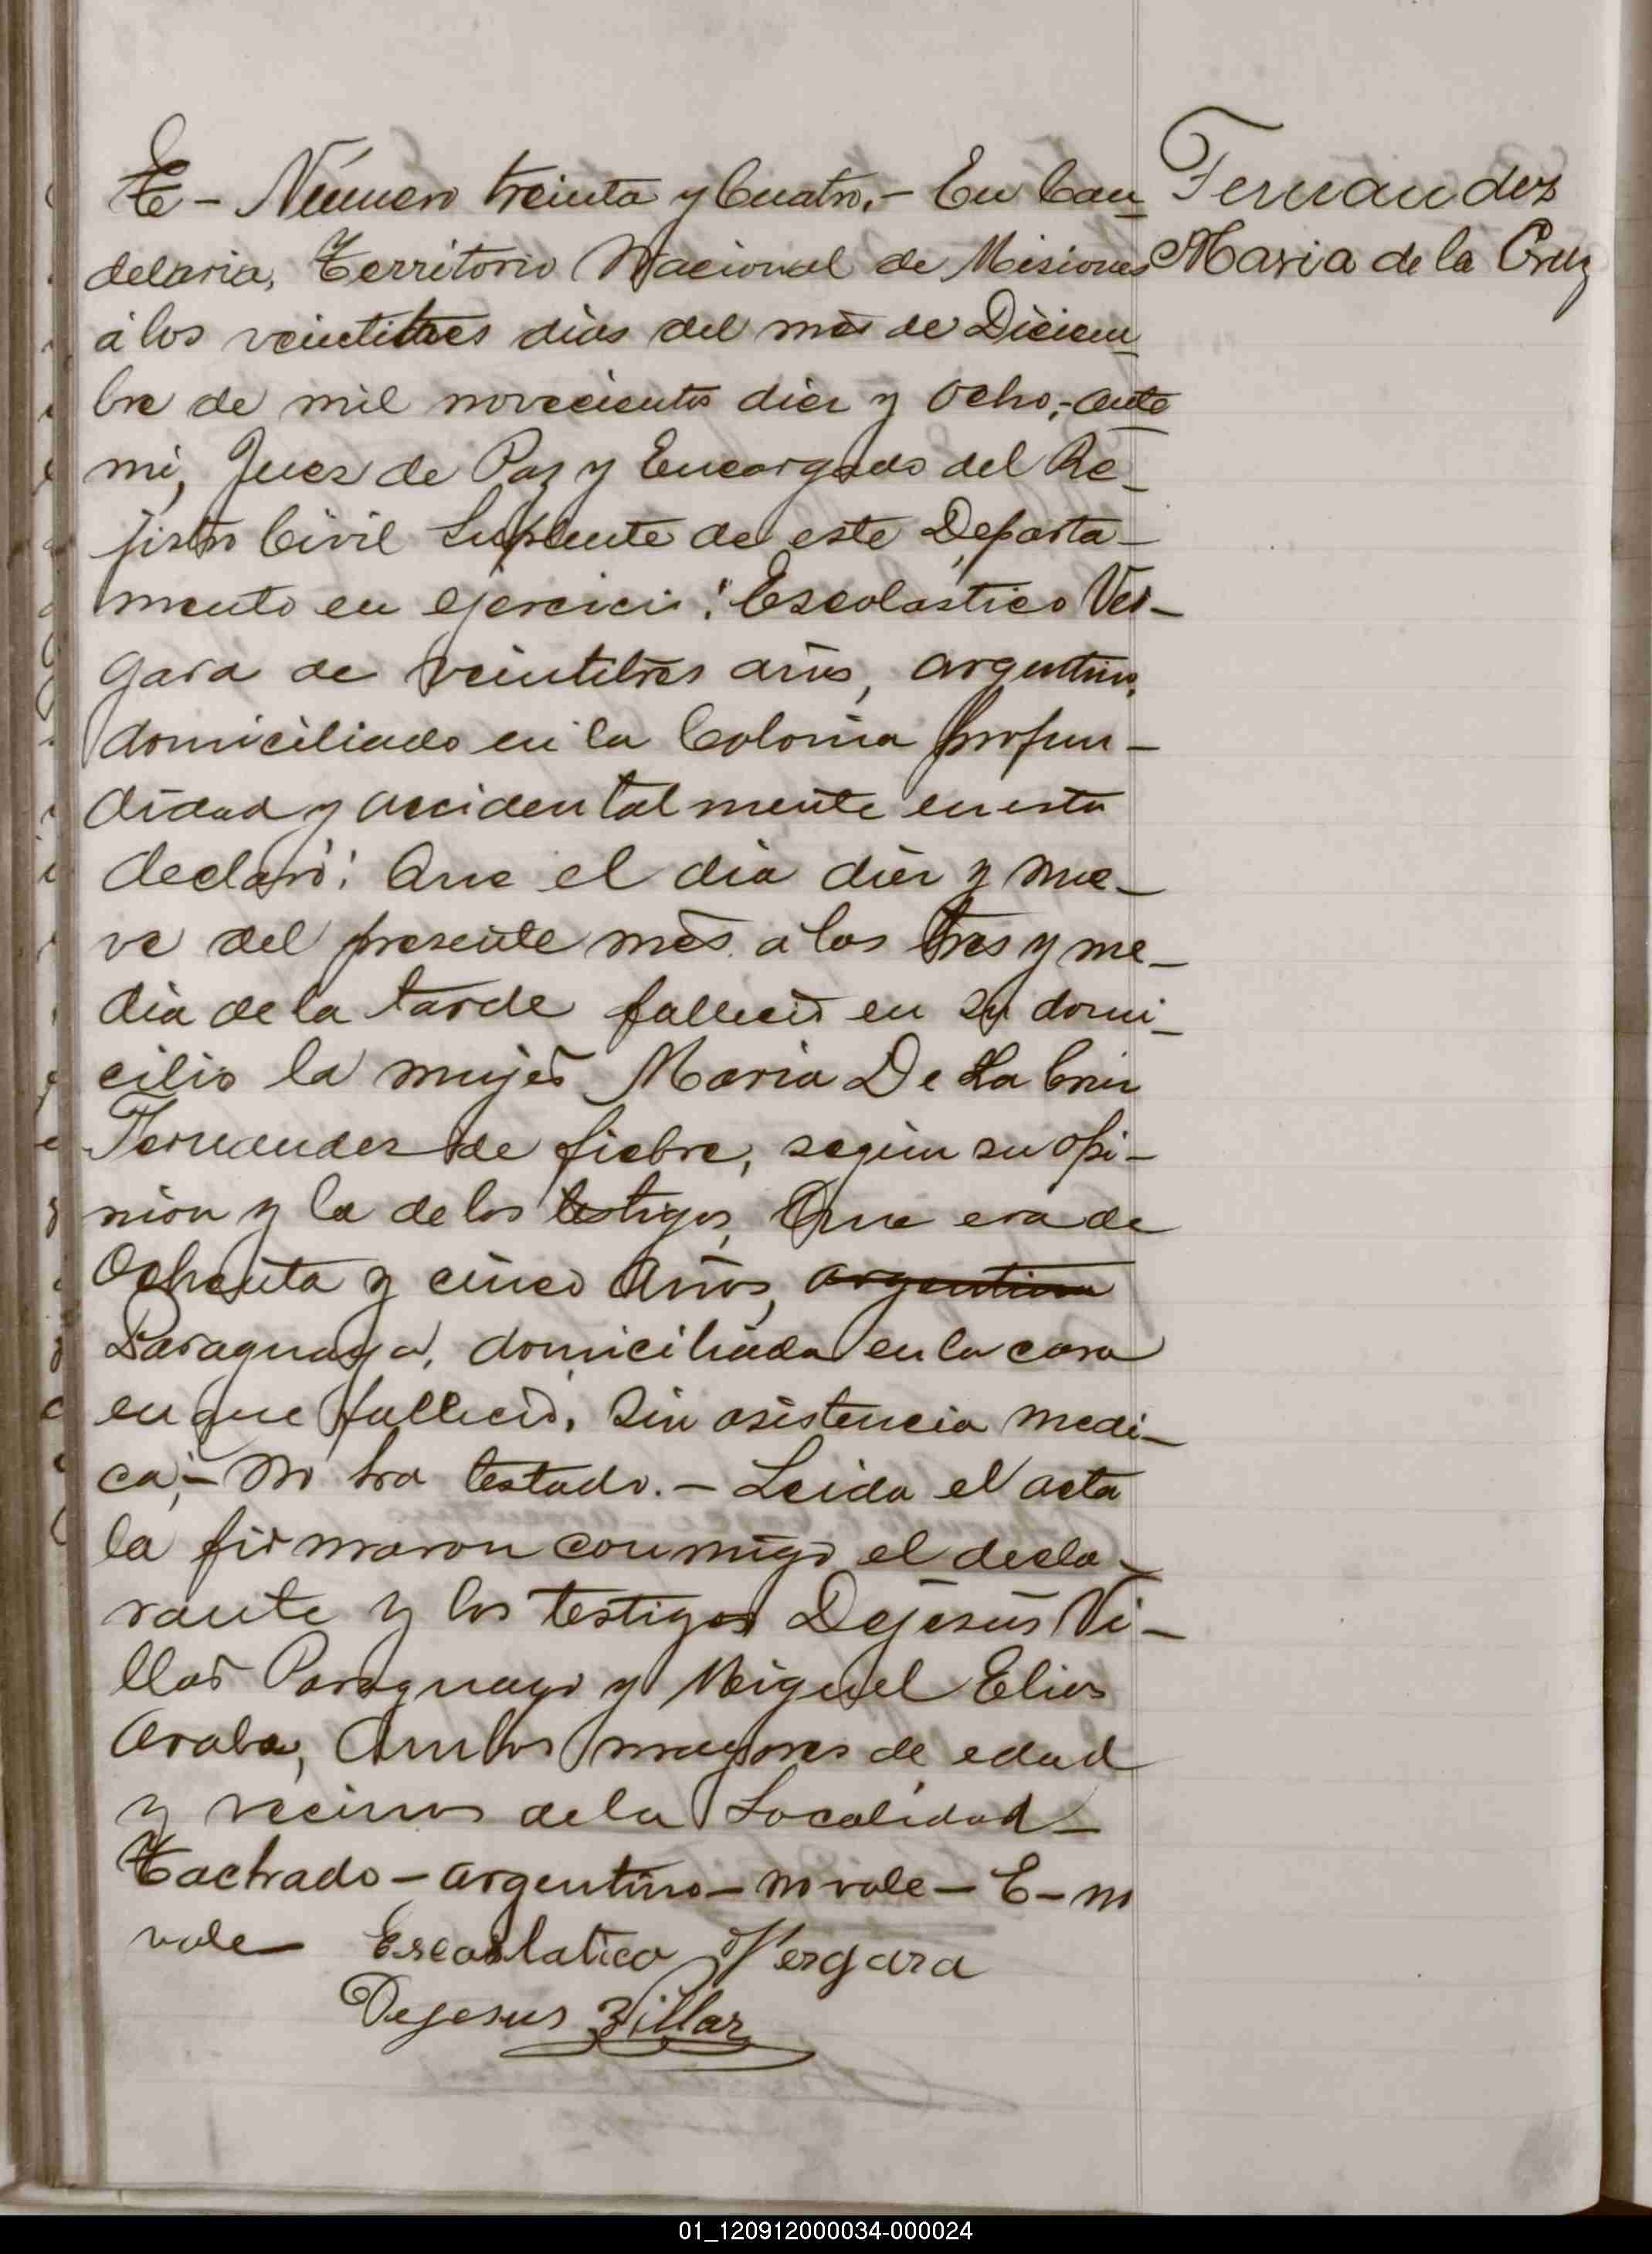 E - Número treinta y Cuatro.- En Can
delaria, Territorio Nacional de Misiones
á los veintitres dias del mes de Diciem
bre de mil novecientos diez y ocho,- ante
mi, Juez de Paz y Encargado del Re-
jistro Civil Suplente de este Departa-
mento en ejercicio: Escolastico Ver-
gara de veintitres años, argentino,
domiciliado en la Colonia profun-
didad y accidentalmente en esta
declaró: Que el dia diez y nue-
ve del presente mes á las tres y me-
dia de la tarde falleció en su domi-
cilio la mujer Maria De La Cruz
Fernandez de fiebre, según su opi-
nión y la de los testigos, Que era de
Ochenta y cinco Años, argentina
Paraguaya, domiciliada en la casa
en que falleció, Sin asistencia medi-
ca,- No ha testado.- Leida el acta
la firmaron conmigo el decla-
rante y los testigos Dejesús Vi-
llar Paraguayo y Miguel Elias
Araba, Ambos mayores de edad
y vecinos de la Localidad-
Tachado - argentino - no vale - E - no
vale
Escoslatico Vergara
Dejesus Villar
Fernandez
Maria de la Cruz
01_120912000034-000024